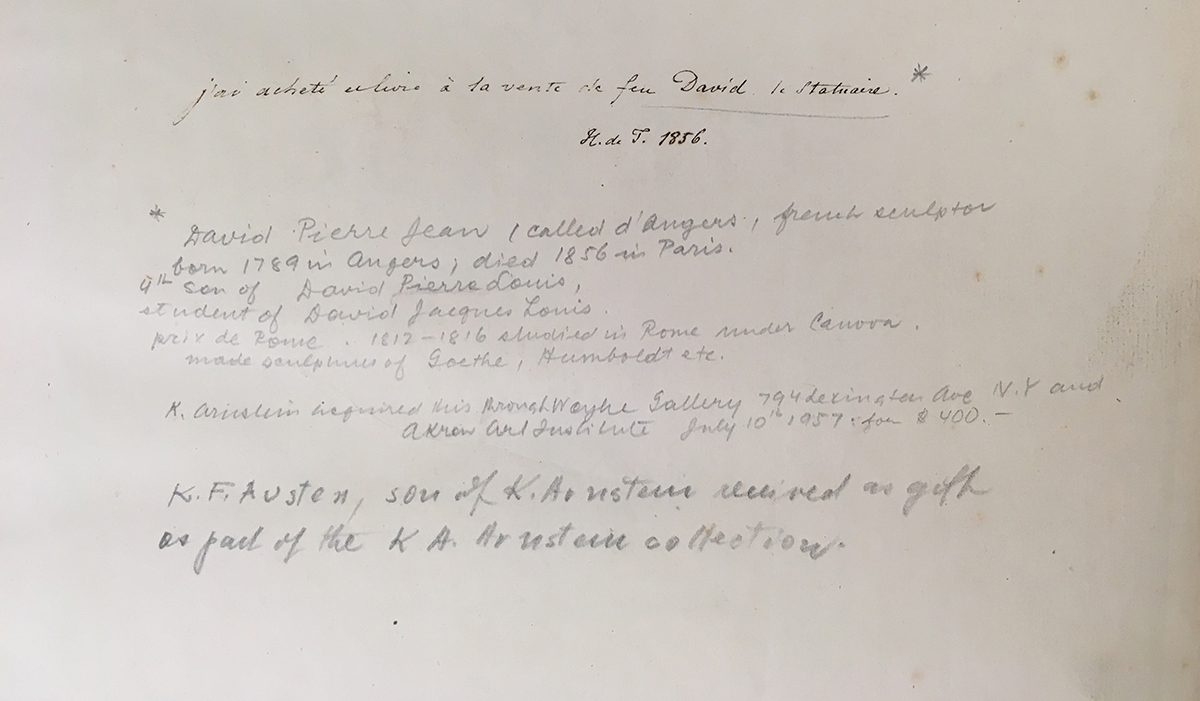 j'ai acheté ce livre à la vente de feu David le Statuaire. *
H. de T. 1856.
* David Pierre Jean (called d'Angers, french sculptor
born 1789 in Angers; died 1856 in Paris.
4th son of David Pierre Louis,
student of David Jacques Louis.
prix de Rome. 1812-1816 studied in Rome under Canova.
made sculptures of Goethe, Humboldt etc.
K. Arnstein acquired this through Weyhe Gallery 794 Lexington Ave N.Y and
Akron Art Institute July 10th 1957. for $ 400.-
K. F. Austen, son of K. Arnstein received as gift
as part of the K A. Arnstein collection.